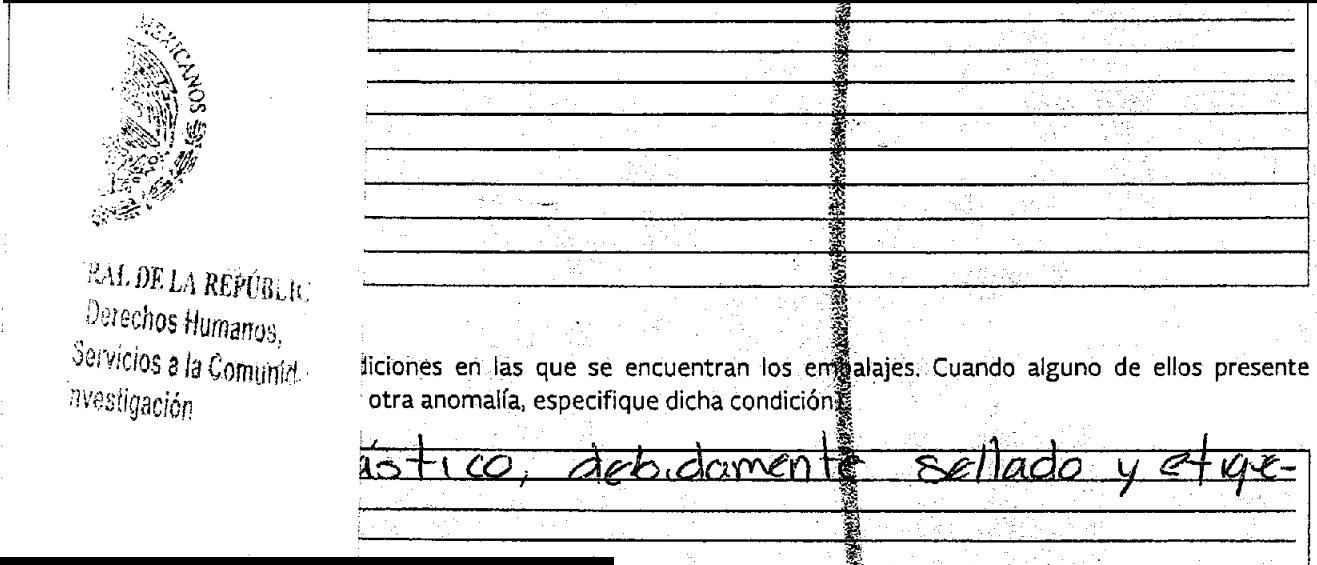 MEXICANOS
RAL DE LA REPÚBLIC
Derechos Humanos,
Servicios a la Comunid
nvestigación
diciones en las que se encuentran los embalajes. Cuando alguno de ellos presente
otra anomalía, especifique dicha condición
ástico, debidamente sellado y etique-